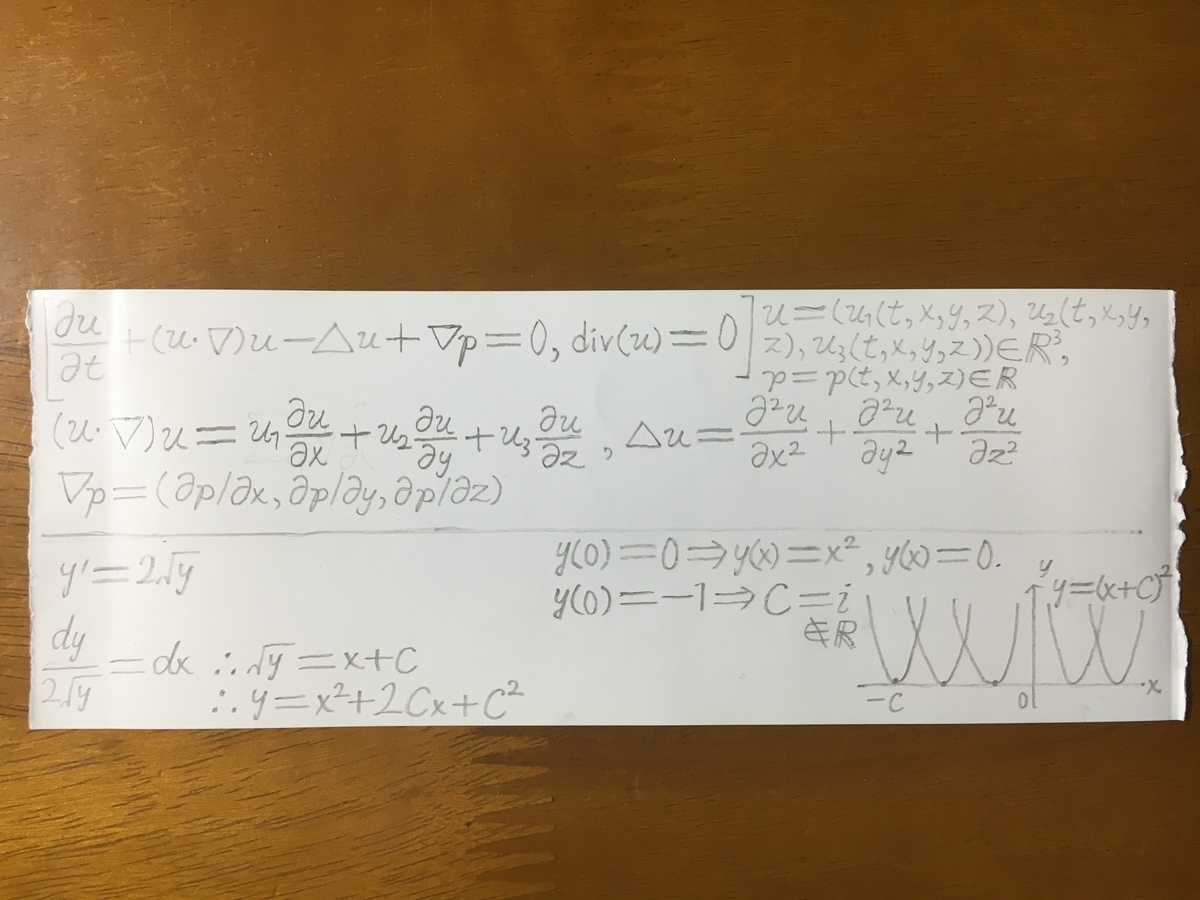 [∂u/∂t + (u·∇)u − △u + ∇p = 0, div(u) = 0]
u = (u₁(t, x, y, z), u₂(t, x, y,
z), u₃(t, x, y, z)) ∈ ℝ³,
p = p(t, x, y, z) ∈ ℝ
(u·∇)u = u₁ ∂u/∂x + u₂ ∂u/∂y + u₃ ∂u/∂z , △u = ∂²u/∂x² + ∂²u/∂y² + ∂²u/∂z²
∇p = (∂p/∂x, ∂p/∂y, ∂p/∂z)
y' = 2√y
dy/2√y = dx ∴ √y = x + C
∴ y = x² + 2Cx + C²
y(0) = 0 ⇒ y(x) = x², y(x) = 0.
y(0) = −1 ⇒ C = i
∉ ℝ
y
y = (x+C)²
−C
0
x